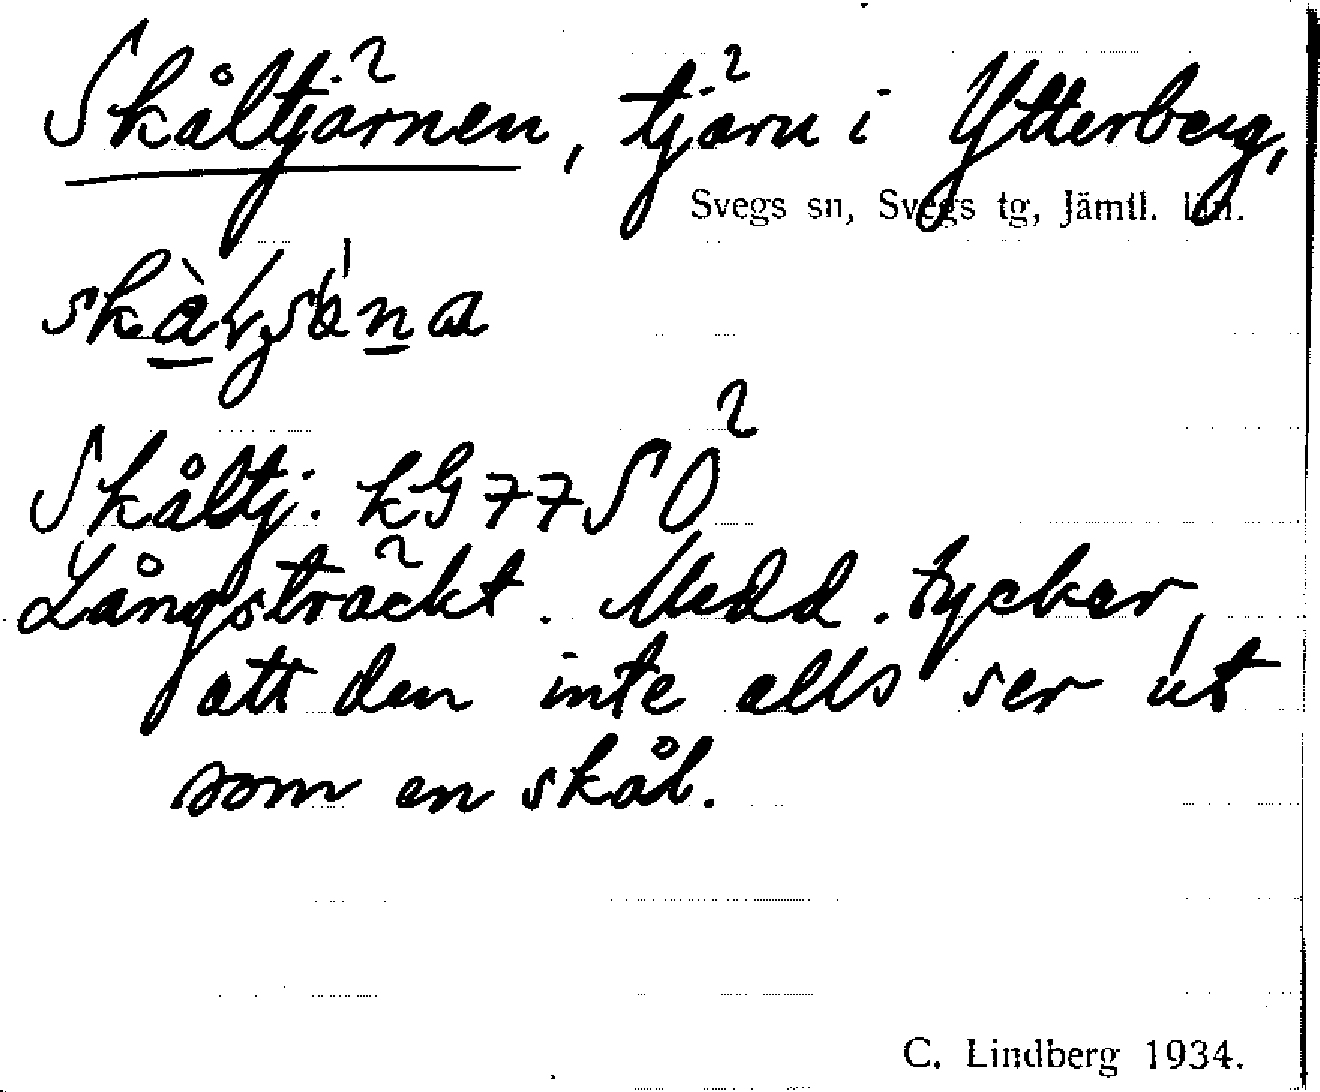 Skåltjärnen, tjärn i Ytterberg,
Svegs sn, Svegs tg, Jämtl. län.
Skåltj. kG77SÖ
Långsträckt. Medd. tycker
att den inte alls ser ut
som en skål.
C. Lindberg 1934.